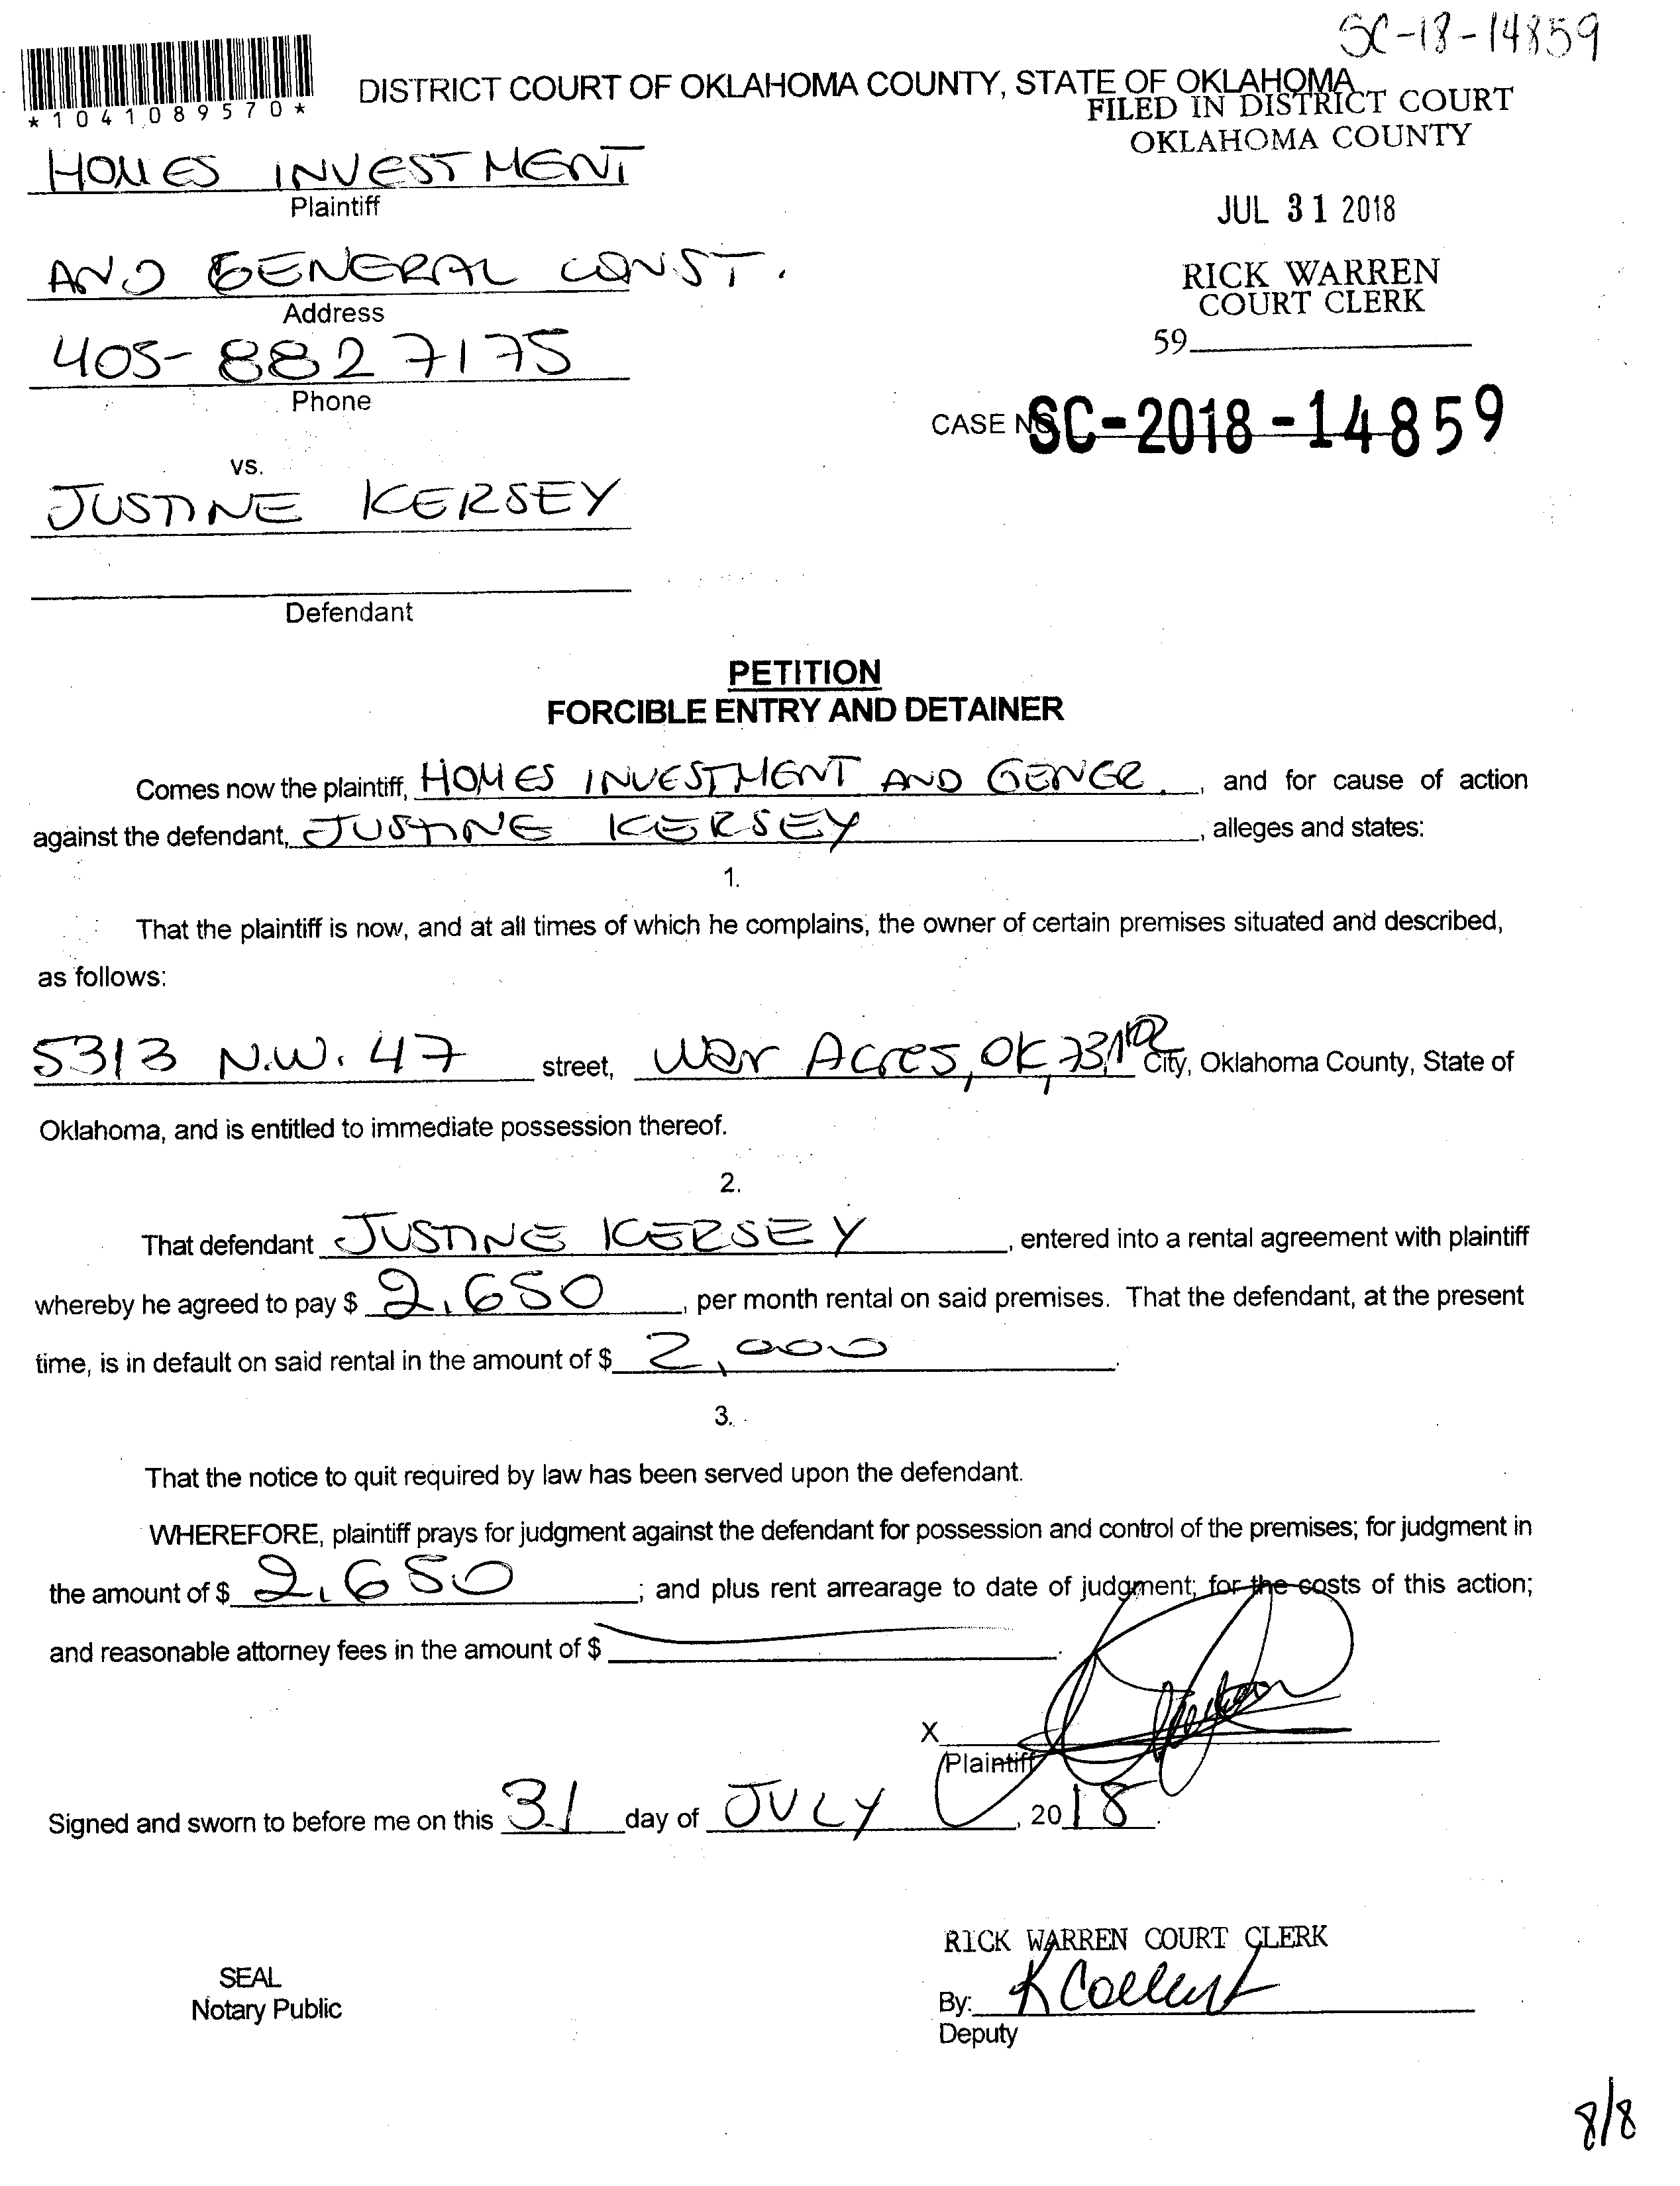 SC-18-14859
*1041089570*
DISTRICT COURT OF OKLAHOMA COUNTY, STATE OF OKLAHOMA
FILED IN DISTRICT COURT
OKLAHOMA COUNTY
HOMES INVESTMENT
Plaintiff
JUL 31 2018
AND GENERAL CONST.
Address
RICK WARREN
COURT CLERK
405-882 7175
Phone
59
CASE NO. SC-2018-14859
vs.
JUSTINE KERSEY
Defendant
PETITION
FORCIBLE ENTRY AND DETAINER
Comes now the plaintiff, HOMES INVESTMENT AND GENER., and for cause of action
against the defendant, JUSTINE KERSEY, alleges and states:
1.
That the plaintiff is now, and at all times of which he complains, the owner of certain premises situated and described,
as follows:
5313 N.W. 47 street, War Acres, OK, 73,122 City, Oklahoma County, State of
Oklahoma, and is entitled to immediate possession thereof.
2.
That defendant JUSTINE KERSEY, entered into a rental agreement with plaintiff
whereby he agreed to pay $ 2,650, per month rental on said premises. That the defendant, at the present
time, is in default on said rental in the amount of $ 2,000.
3.
That the notice to quit required by law has been served upon the defendant.
WHEREFORE, plaintiff prays for judgment against the defendant for possession and control of the premises; for judgment in
the amount of $ 2,650; and plus rent arrearage to date of judgment; for the costs of this action;
and reasonable attorney fees in the amount of $.
X
Plaintiff
Signed and sworn to before me on this 31 day of JULY, 2018.
RICK WARREN COURT CLERK
SEAL
Notary Public
By:
Deputy
8/8